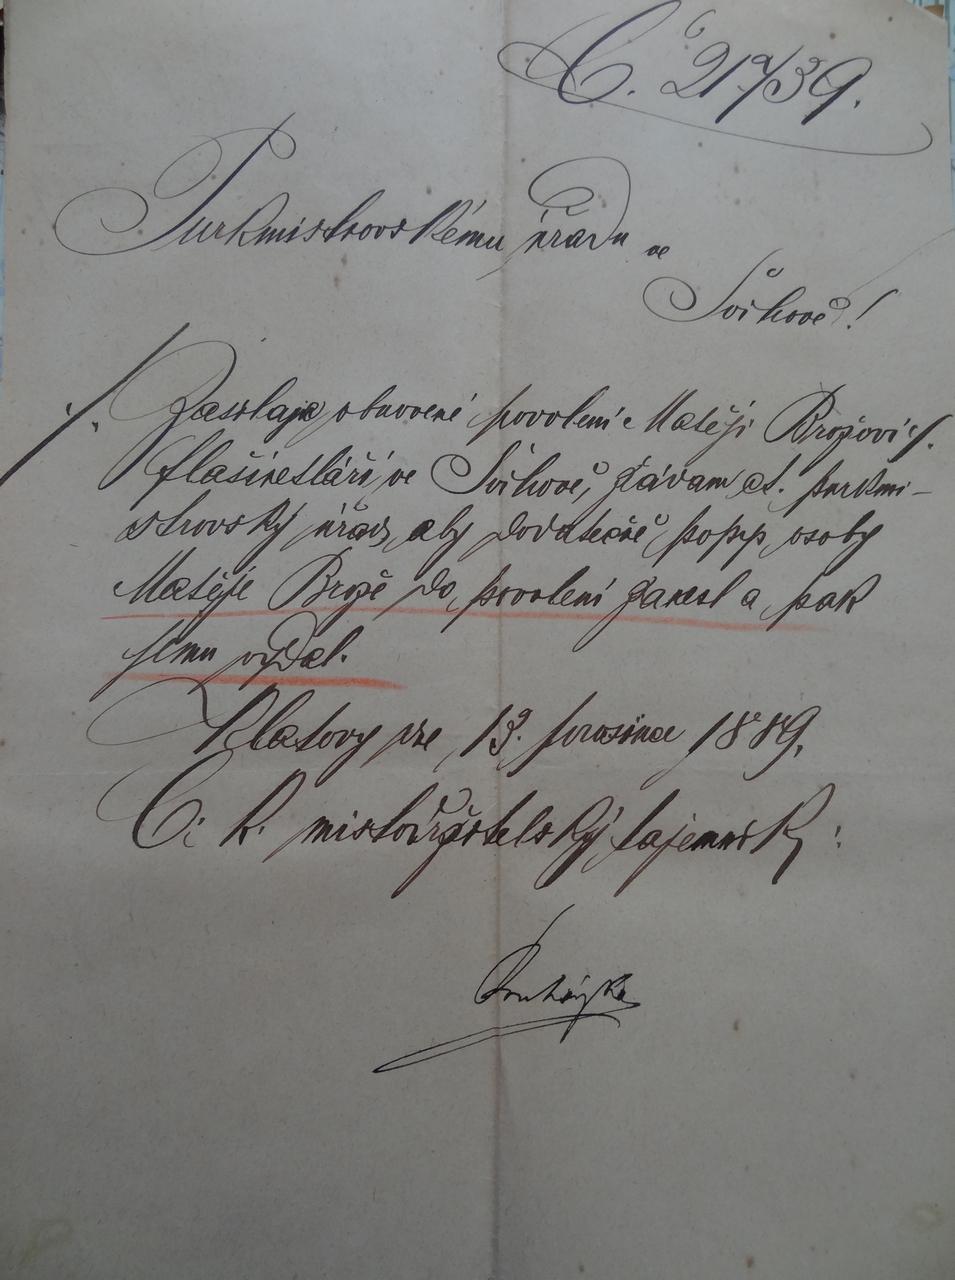 Č. 217/39.
Purkmistrovskému úřadu ve
Svihově!
/. Zasílaje obnovené povolení Matěji Brožovi /.
flašinetláři ve Svihově, žádám ct. purkmi-
strovský úřad, aby dodatečně popis osoby
Matěje Brože do povolení zanesl a pak
jemu vydal.
Klatovy dne 13. prosince 1889.
C. k. místodržitelský tajemník: